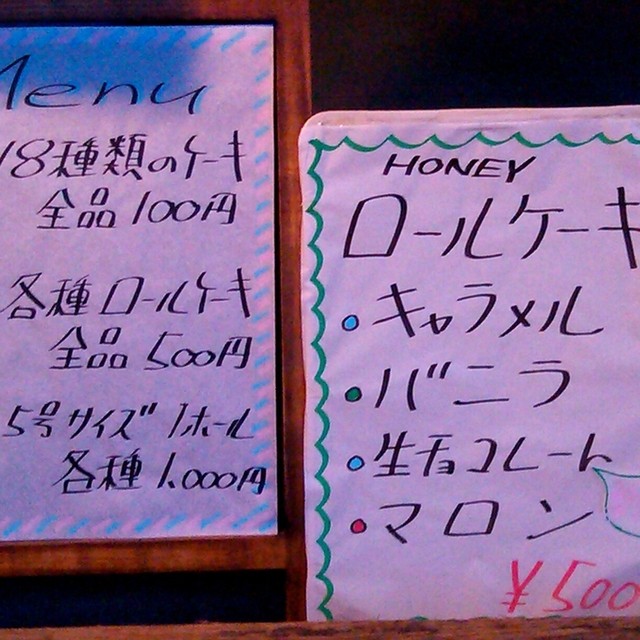 Menu
18種類のケーキ
全品100円
各種ロールケーキ
全品500円
5号サイズ1ホール
各種1,000円
HONEY
ロールケーキ
・キャラメル
・バニラ
・生チョコレート
・マロン
¥500